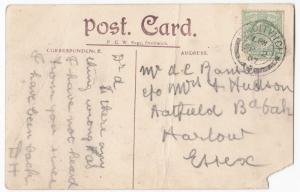 Post Card.
CORRESPONDENCE.
ADDRESS.
Dr d
Is there any
thing wrong as
I have not head
from you since
I have been back
EH
Mr d C
c/o Mrs Hudson
Hatfield
Harlow
Essex